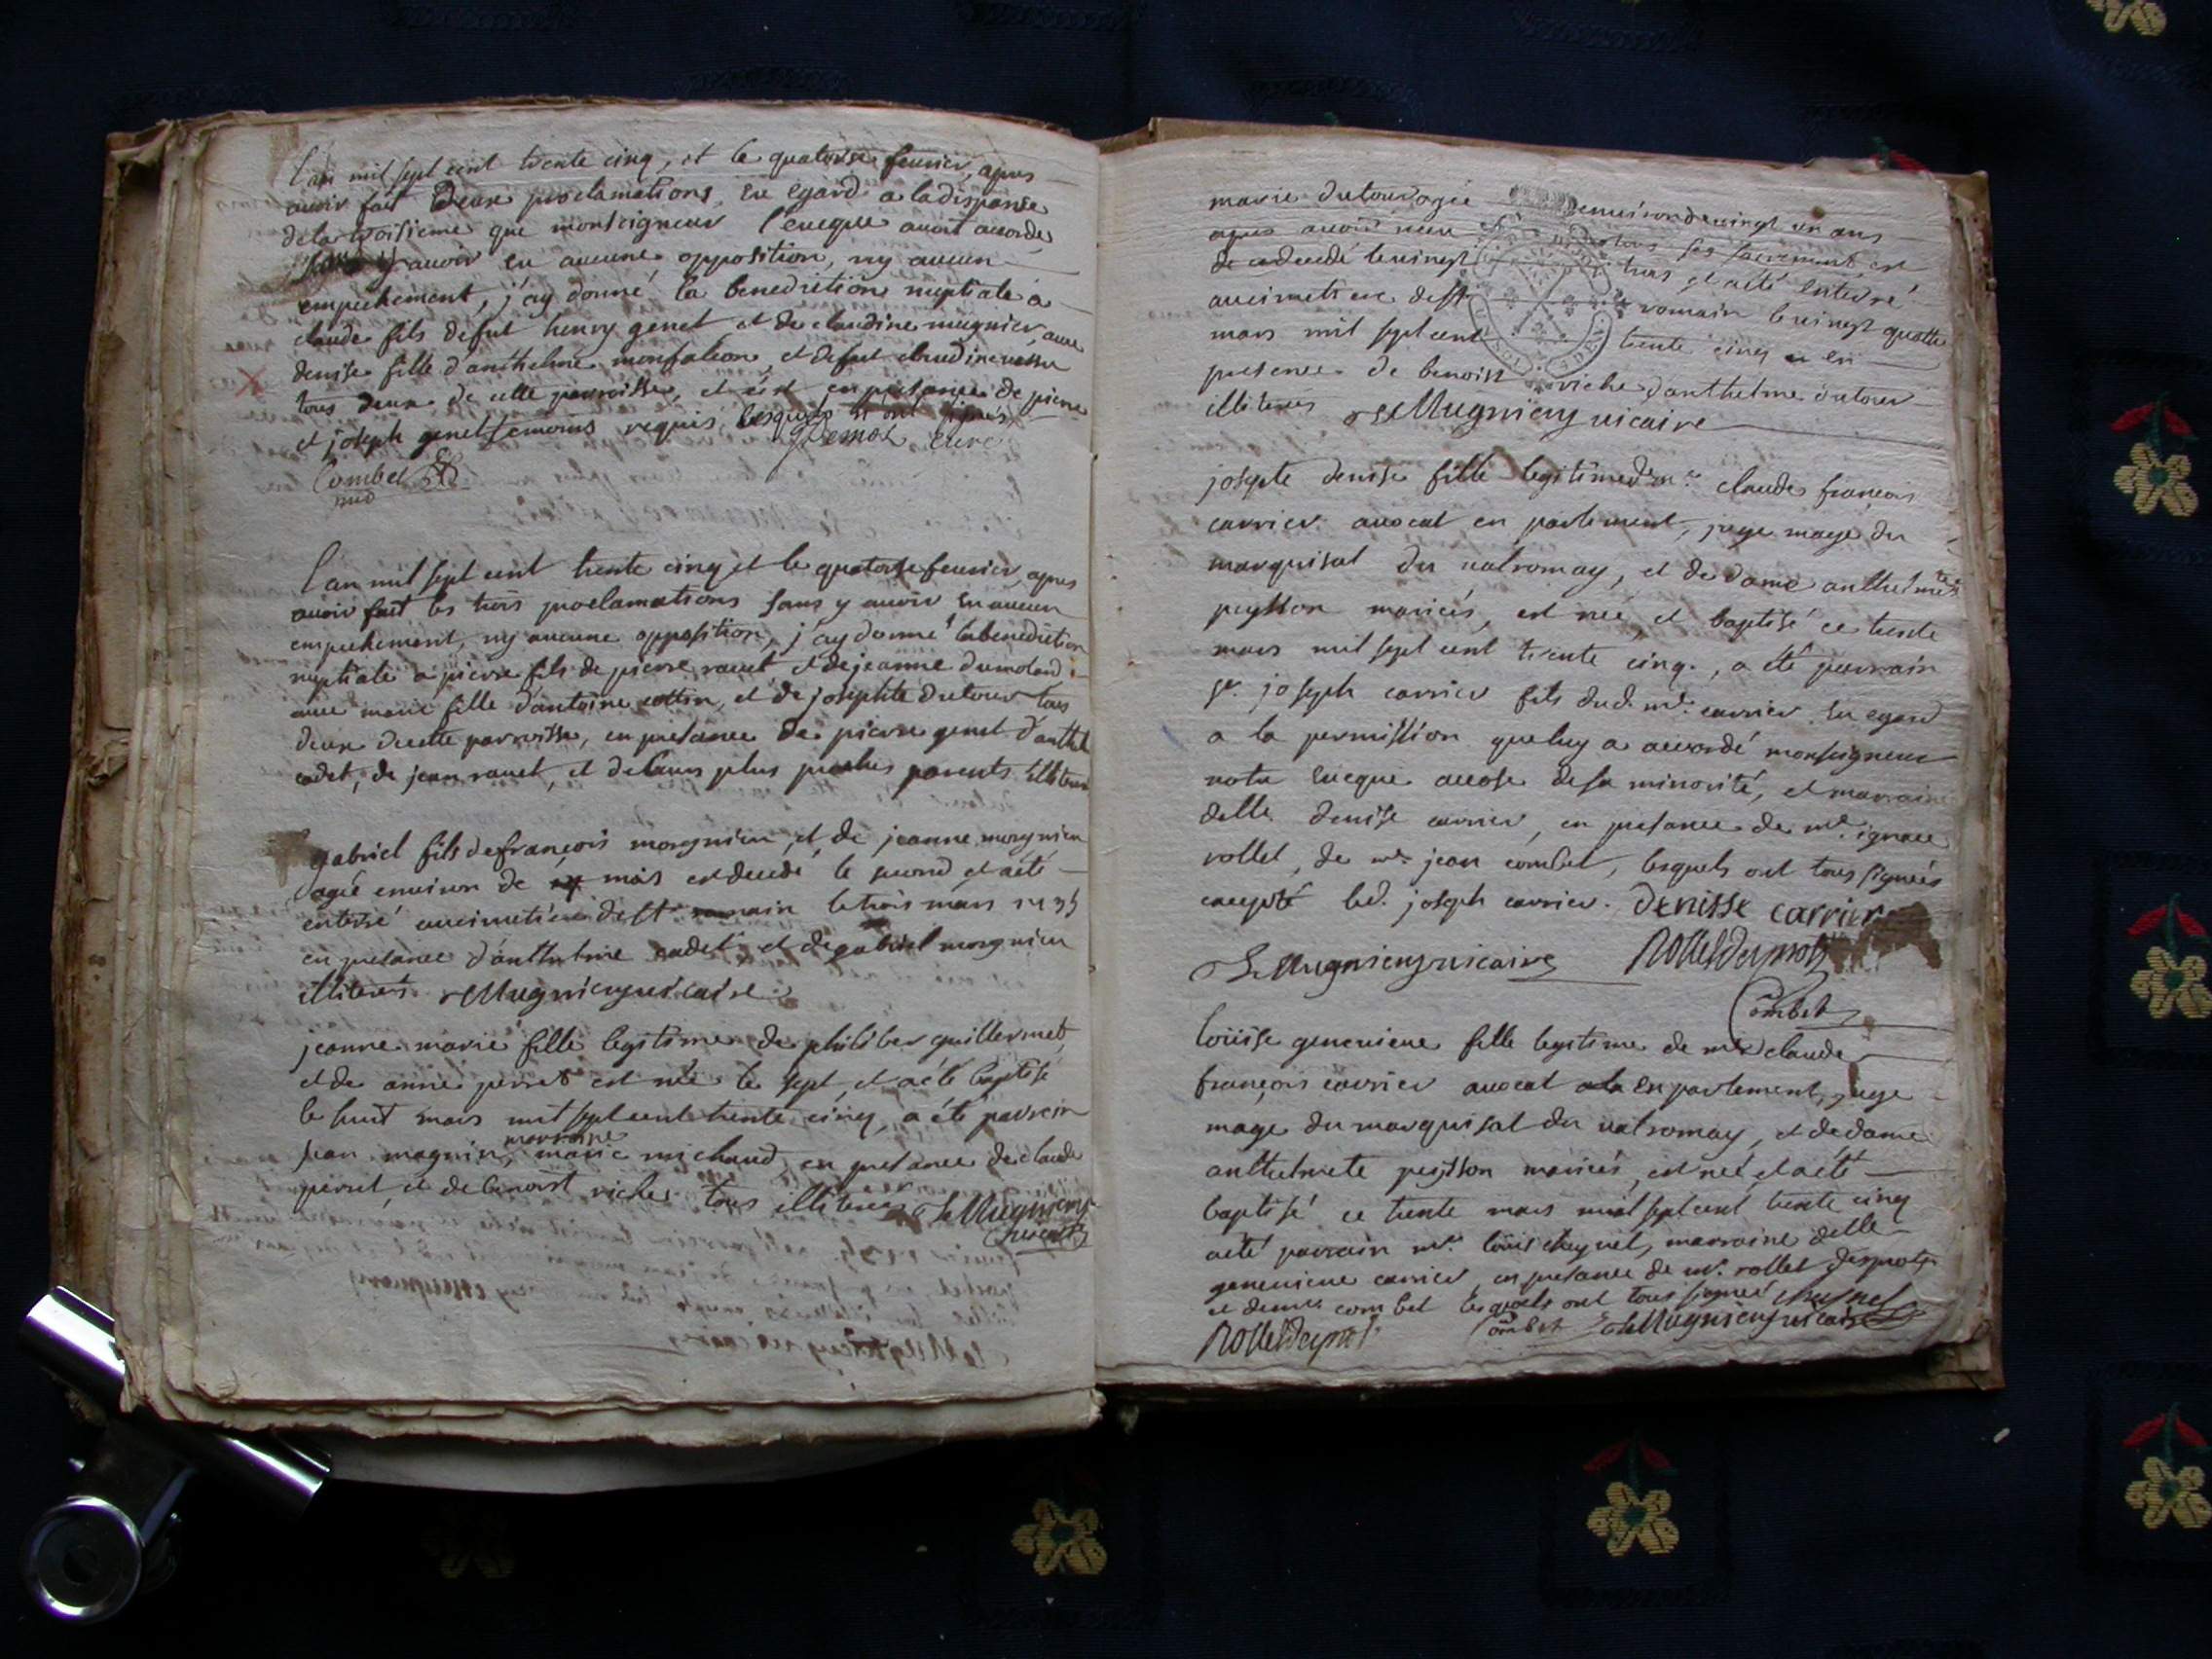 l'an mil sept cent trente cinq, et le quatorse feurier, apres
auoir fait Deux proclamations, eu egard a la dispanse
de la troisieme que monseigneur l'eueque auoit accordé,
y auoir eu aucune opposition, ny aucun
empechement, j'ay donné la benediction nuptiale a
claude fils de fut henry genet et de claudine mugnier, auec
denise fille d'anthelme monfalcon, et de fut claudine
tous deux de cette parroisse, et c'est en presance de pierre
et joseph genet temoins requis, lesquels n'ont signés
curé
Combet
l'an mil sept cent trente cinq et le quatorse feurier, apres
auoir fait les trois proclamations sans y auoir eu aucun
empechement, ny aucune opposition, j'ay donné la benediction
nuptiale a pierre fils de pierre rauet et de jeanne dumolard
auec marie fille d'antoine cottin, et de josephte dutour tous
deux de cette parroisse, en presance de pierre genet d'anthel
cadet, de jean rauet, et de leurs plus proches parents illiteres
gabriel fils de françois morgnieu, et de jeanne morgnieu
agé enuiron de mois est decedé le second, et a eté
enterré au cimetiere de st romain le trois mars 1735
en presance d'anthelme cadet, et de gabriel morgnieu
illiteres. Mugniery uicaire
jeanne marie fille legitime de philiber guillermet,
et de anne perret est née le sept, et a eté baptisé
le huit mars mil sept cent trente cinq, a eté parrein
jean magnin, marraine marie michaud, en presance de claude
perret, et de benoist riche tous illiteres Mugniery
uicaire
marie dutour agée enuiron de uingt un ans
apres auoir receu tous ses sacrements, est
decedé le uingt trois et a eté enterré
au cimetiere de st romain le uingt quattre
mars mil sept cent trente cinq en
presence de benoist riche d'anthelme dutour
illiteres Mugniery uicaire
josepte denise fille legitime de mre claude françois
carrier auocat en parlement, juge mage du
marquisat du ualromay, et de dame anthelmete
peysson mariés, est née, et baptisé ce trente
mars mil sept cent trente cinq, a eté parrain
sr. joseph carrier fils dud. mr. carrier. Eu egard
a la permission que luy a accordé monseigneur
notre eueque acose de sa minorité, et marraine
delle denise carrier, en presance de mr. ignace
rollet, de mr. jean combet, lesquels ont tous signés
excepté led. joseph carrier. Denisse carrier
Mugniery uicaire
Combet
loüise geneuieue fille legitime de mre claude
françois carrier auocat en parlement, juge
mage du marquisat du ualromay, et de dame
anthelmete peysson mariés, est née, et a eté
baptisé ce trente mars mil sept cent trente cinq
a eté parrain mr. loüis cheynel, marraine delle
geneuieue carrier, en presance de mr. rollet
et de mr. combet lesquels ont tous signé
Combet Mugniery uicaire